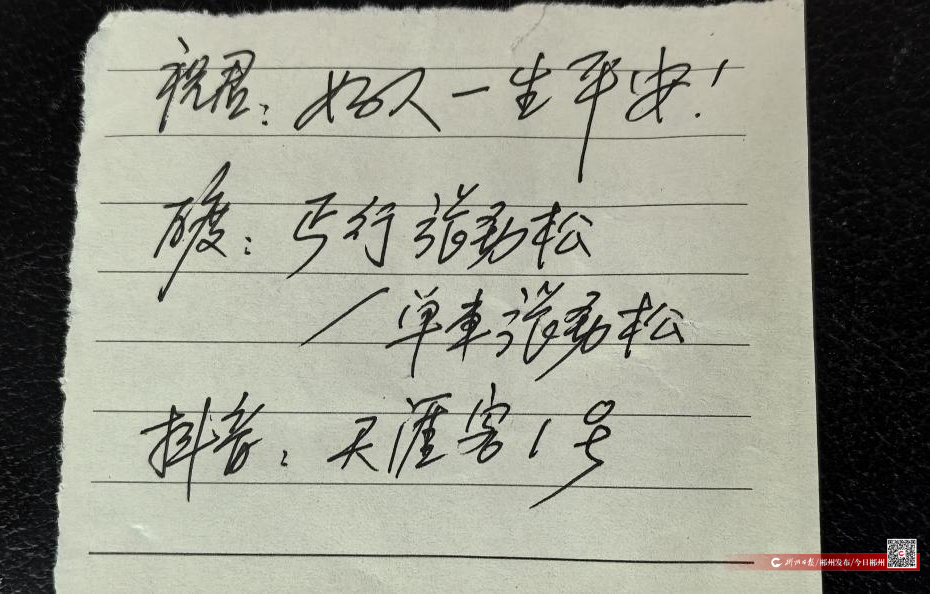 祝君：好人一生平安！
百度：丐行张劲松
/单車张劲松
抖音：天涯客1号
郴州日报/郴州发布/今日郴州